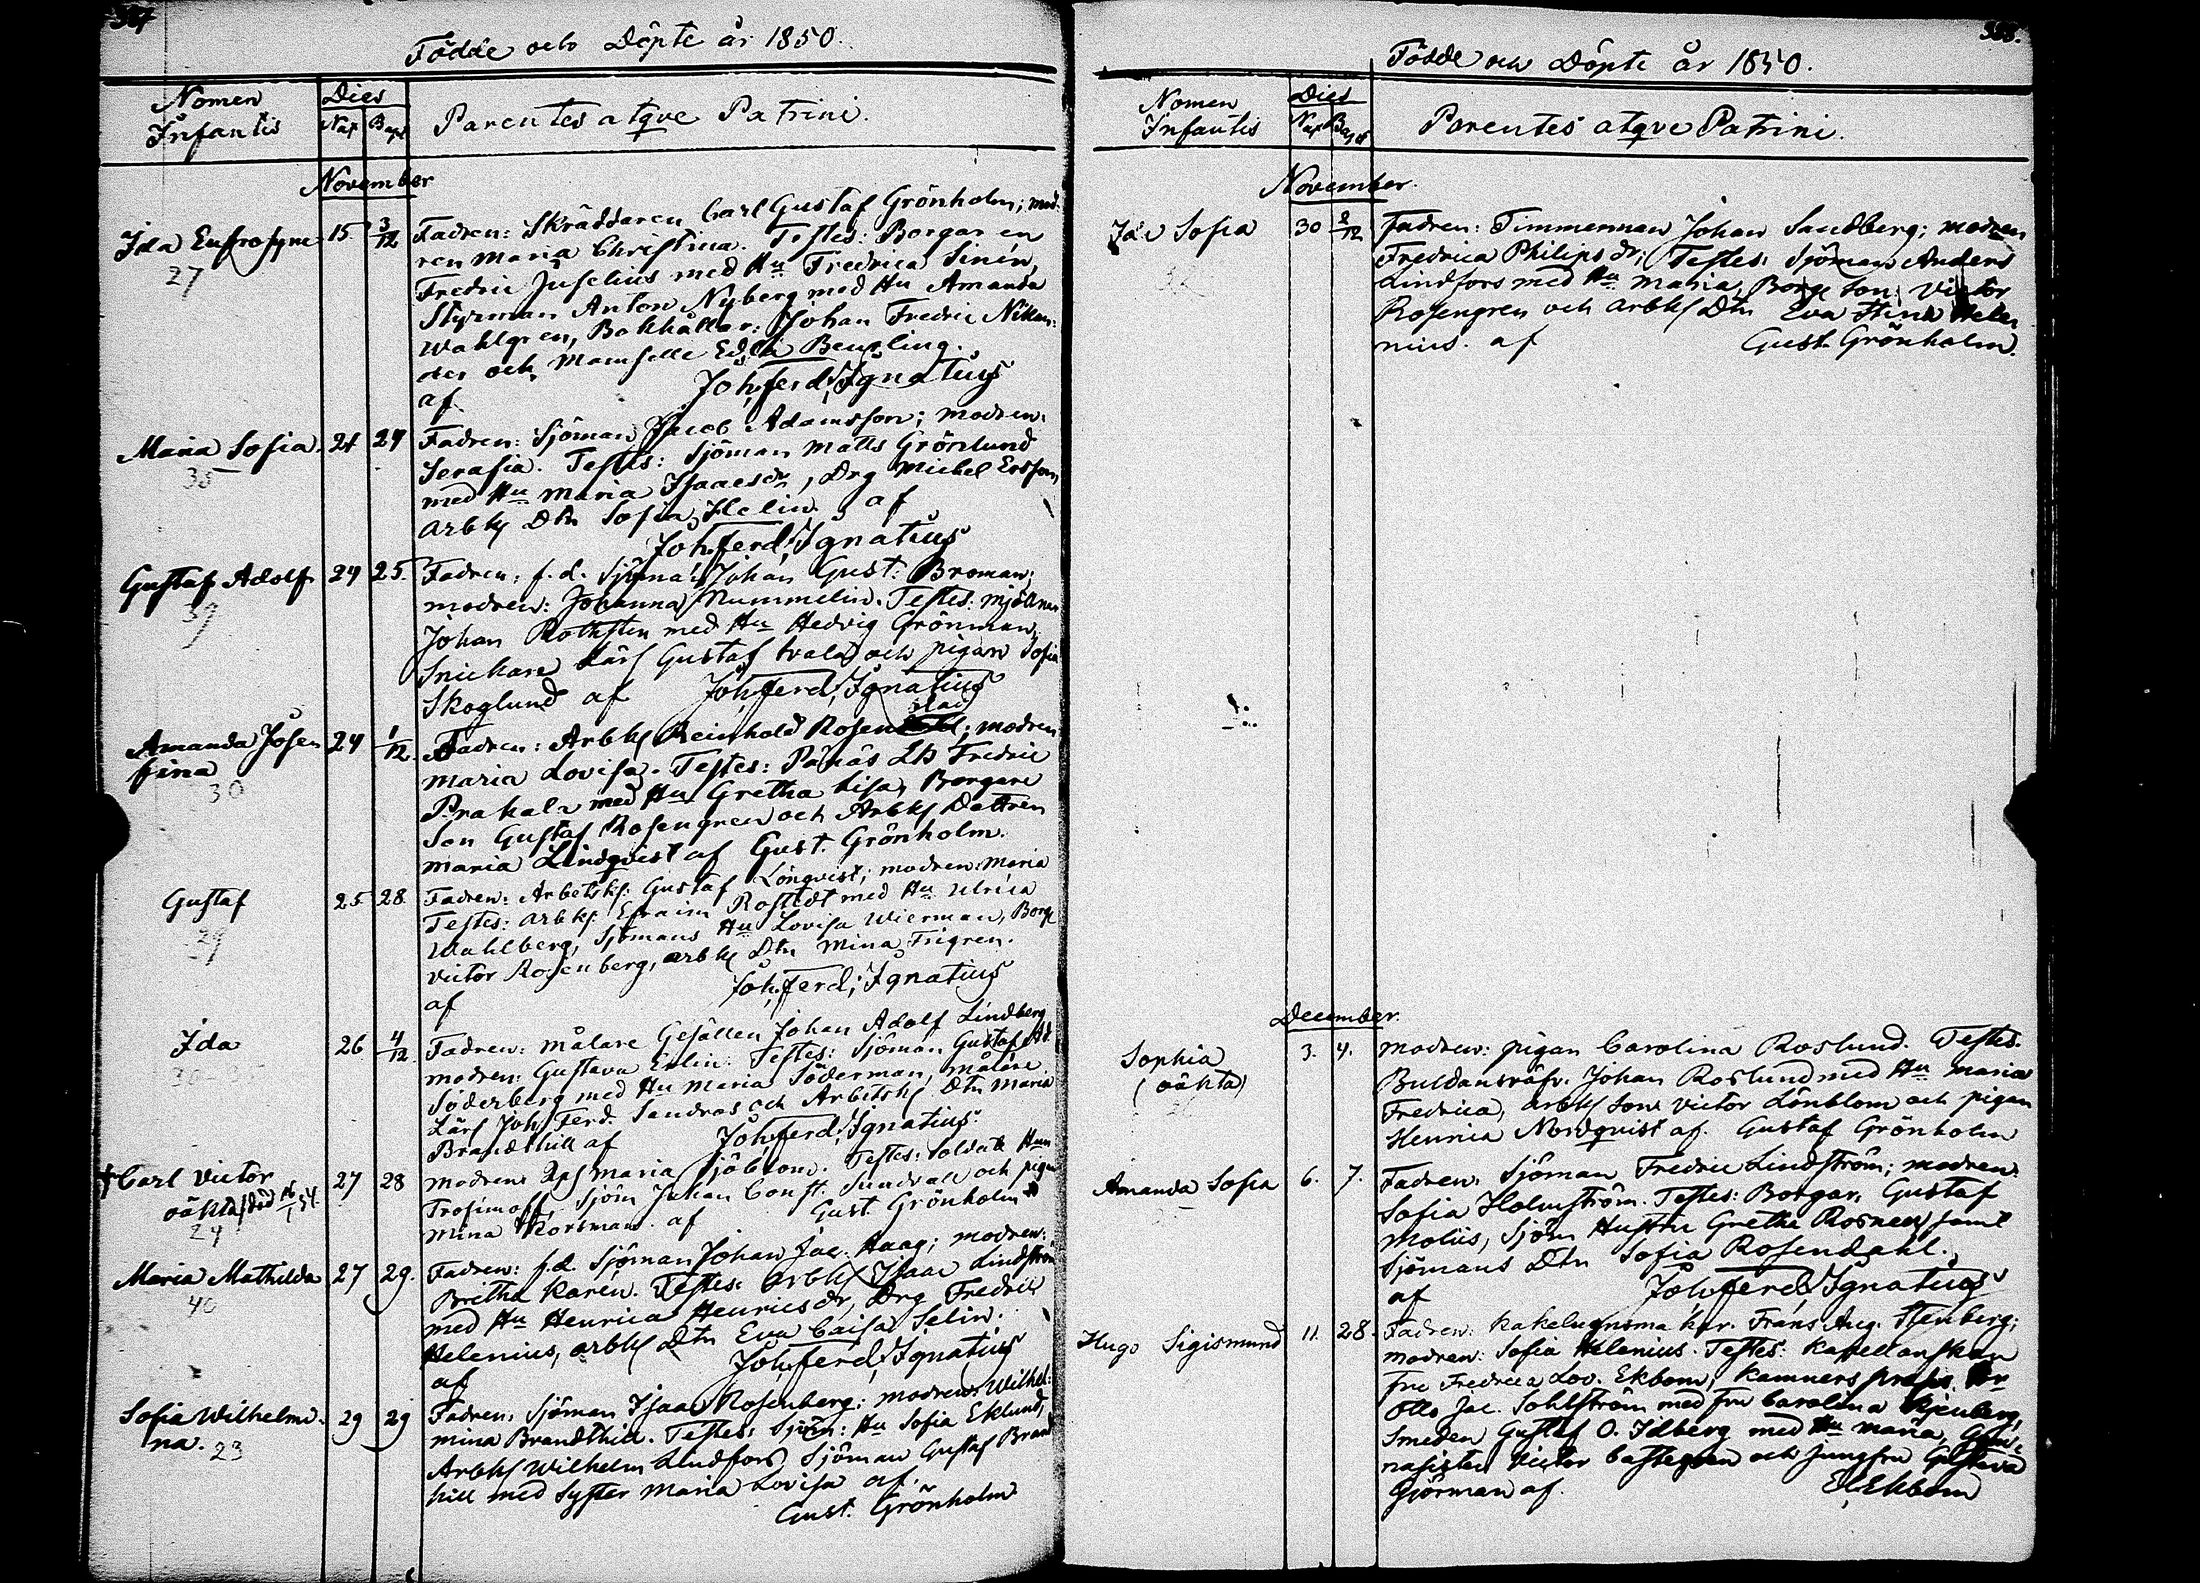 Födde och Döpte år 1850.
Nomen Infantis
Dies
Nat. Bapt.
Parentes atqve Patrini.
November
Ida Eufrosyne 15. 3/12 Fadren: Skräddaren Carl Gustaf Grönholm; mod-
27
ren Maria Christina. Testes: Borgaren
Fredric Juselius med Hu Fredrica Sinén,
Styrman Anton Nyberg med Hu Amanda
Wahlgren, Bokhållar: Johan Fredric Nikan-
der och Mamselle Edla Beurling.
af Joh. Ferd. Ignatius
Maria Sofia. 24 27 Fadren: Sjöman Jacob Adamsson; modren:
35
Serafia. Testes: Sjöman Matts Grönlund
med Hu Maria Isaacsdr, Drg Michel Ersson,
Arbk Dtn Sofia Helin. af
Joh. Ferd. Ignatius
Gustaf Adolf 24 25. Fadren: f.d. Sjöman Johan Gust: Broman;
37
modren: Johanna Nummelin. Testes: Mjölnar
Johan Rothsten med Hu Hedvig Grönman,
Snickare Lärl Gustaf och pigan Sofia
Skoglund af Joh. Ferd. Ignatius
Amanda Josefina 24 1/12. Fadren: Arbk Reinhold Rosenblad; modren
30
Maria Lovisa. Testes: Pånäs Lb Fredric
Prakala med Hu Gretha Lisa, Borgare
Son Gustaf Rosengren och Arbk Dottren
Maria Lindqvist af Gust. Grönholm.
Gustaf 25 28. Fadren: Arbetsk: Gustaf Lönqvist; modren: Maria
29
Testes: Arbk: Efraim Rostedt med Hu Ulrica
Wahlberg, Sjömans Hu Lovisa Wierman, Borg
Victor Rosenberg, arbk Dtn Mina Frigren.
af Joh. Ferd. Ignatius
Ida 26 4/12. Fadren: målare Gesällen Johan Adolf Lindberg
modren: Gustava Erlin. Testes: Sjöman Gustaf Ad.
Söderberg med Hu Maria Söderman, målare
Lärl Joh. Ferd. Sandros och Arbetsk Dtn Maria
Brandthill af Joh. Ferd. Ignatius.
† Carl Victor 27 28 modren: Maria Sjöblom. Testes: Soldats Hun
oäkta / död 16/1 54.
24
Trofimoff, Sjöm Johan Const. Sundvall och pigan
Mina Korsman. af Gust Grönholm
Maria Mathilda 27 29. Fadren: f.d. Sjöman Johan Jac: Haag; modren:
40
Britha Karén. Testes: Arbk Isaac Lindström
med Hu Henrica Henricsdr, Drg Fredric
Helenius, arbk Dtn Eva Caisa Selin.
af Joh. Ferd. Ignatius
Sofia Wilhelmina. 29 29 Fadren: Sjöman Isaac Rosenberg; modren: Wilhel-
23
mina Brandthill. Testes: Sjöm: Hu Sofia Eklund,
Arbk Wilhelm Lindfors, Sjöman Gustaf Brand
hill med Syster Maria Lovisa af.
Gust. Grönholm
Födde och Döpte år 1850.
Nomen Infantis
Dies
Nat Bapt
Parentes atqve Patrini.
November.
Ida Sofia 30 2/12 Fadren: Timmerman Johan Sandberg; modren
Fredrica Philipsdr; Testes: Sjöman Anders
Lindfors med Hu Maria, Borg Son Victor
Rosengren och arbk Dtn Eva Stina Hele-
nius. af Gust. Grönholm.
December.
Sophia 3. 4. modren: pigan Carolina Roslund. Testes.
(oäkta)
Buldansväfv. Johan Roslund med Hu Maria
Fredrica, arbk Son Victor Lönblom och pigan
Henrica Nordqvist af. Gustaf Grönholm
Amanda Sofia 6. 7. Fadren: Sjöman Fredric Lindström; modren:
Sofia Holmström. Testes: Borgar. Gustaf
Molius, Sjöm Hustru Gretha Rosnell samt
Sjömans Dtn Sofia Rosendahl.
af Joh. Ferd. Ignatius
Hugo Sigismund 11. 28. Fadren: Kakelugnsmakar. Frans Aug. Stenberg;
modren: Sofia Helenius. Testes: Kapellanskan
fru Fredrica Lov. Ekbom, Kamners præses Hr
Otto Jac. Sohlström med fru Carolina
Smeden Gustaf O. Idberg med Hu Maria, Gym-
nasisten Victor Castegren och Jungfru Gustava
Björman af. Ekbom